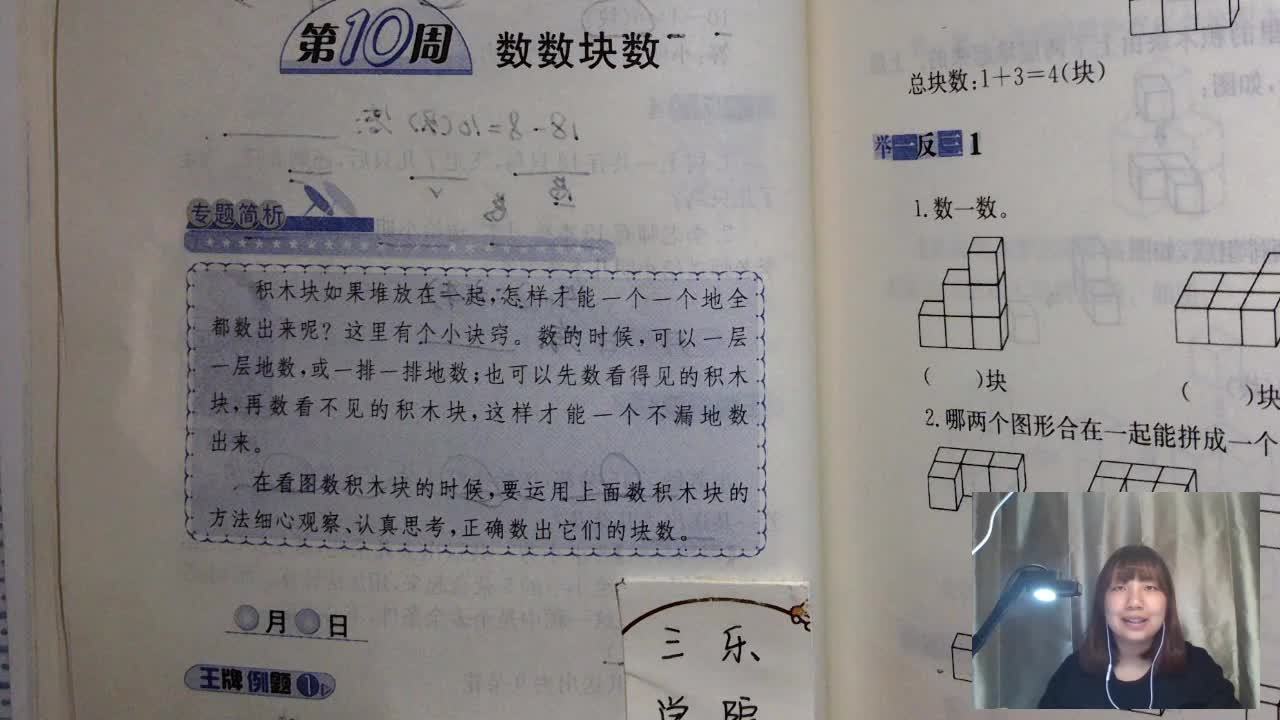 第10周 数数块数
专题简析
积木块如果堆放在一起,怎样才能一个一个地全
都数出来呢?这里有个小诀窍。数的时候,可以一层
一层地数,或一排一排地数;也可以先数看得见的积木
块,再数看不见的积木块,这样才能一个不漏地数
出来。
在看图数积木块的时候,要运用上面数积木块的
方法细心观察、认真思考,正确数出它们的块数。
月 日
王牌例题1
三 乐
学 院
总块数:1+3=4(块)
举一反三1
1.数一数。
( )块
( )块
2.哪两个图形合在一起能拼成一个